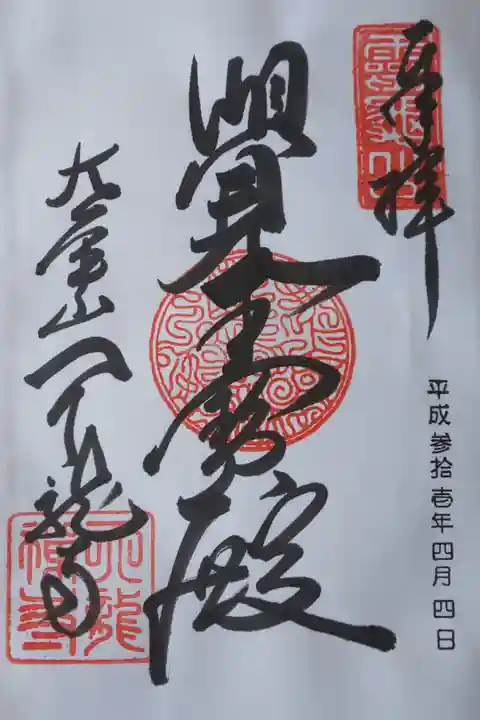 奉拝
平成参拾壱年四月四日
覺王寶殿
大本山天龍寺